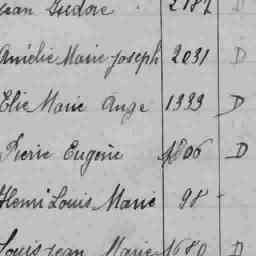 Jean Isidore 2182 D
Amélie Marie Joseph 2031 D
Elie Marie Ange 1333 D
Pierre Eugène 1806 D
Henri Louis Marie 98 -
Louis Jean Marie 1680 D